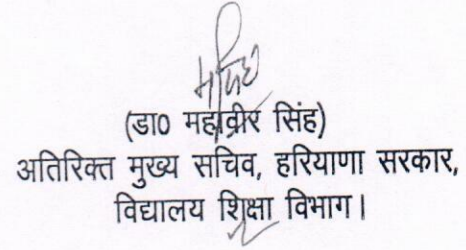 (डा0 महावीर सिंह)
अतिरिक्त मुख्य सचिव, हरियाणा सरकार,
विद्यालय शिक्षा विभाग।